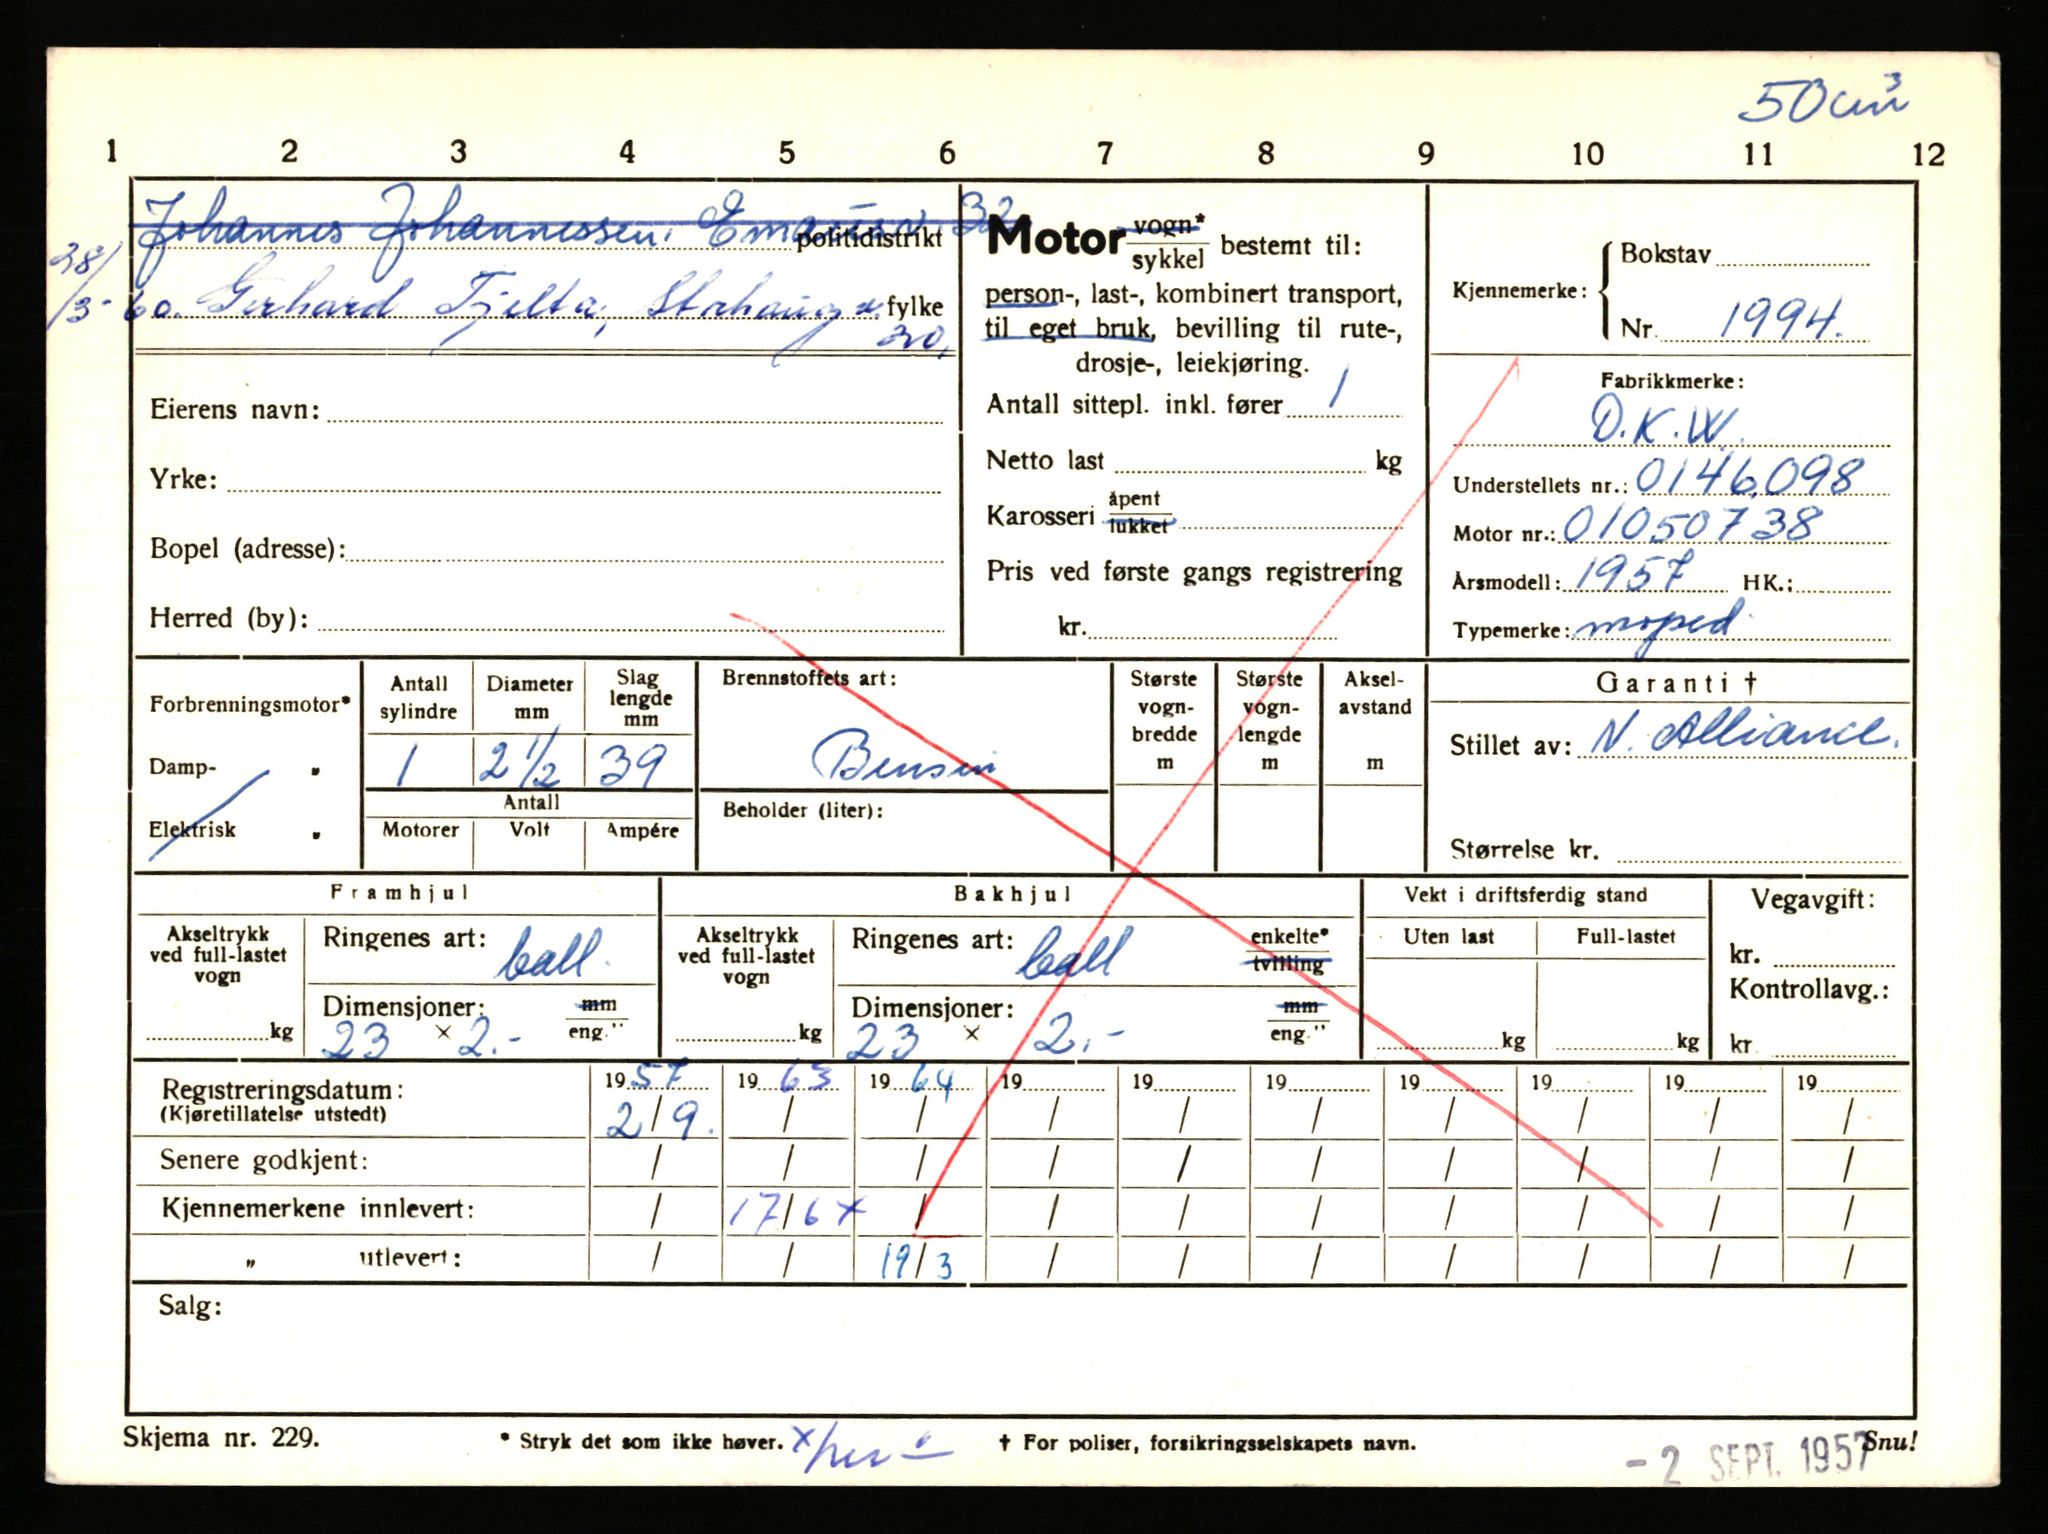 50 cm³
1 2 3 4 5 6 7 8 9 10 11 12
Johannes Johannessen, 32
politidistrikt
28/3-60. Gerhard Tjelta, fylke
30,
Eierens navn:
Yrke:
Bopel (adresse):
Herred (by):
Motor vogn*/sykkel bestemt til:
person-, last-, kombinert transport,
til eget bruk, bevilling til rute-,
drosje-, leiekjøring.
Antall sittepl. inkl. fører 1
Netto last kg
Karosseri åpent/lukket
Pris ved første gangs registrering
kr.
Kjennemerke: Bokstav
Nr. 1994.
Fabrikkmerke:
D.K.W.
Understellets nr.: 0146,098
Motor nr.: 01050738
Årsmodell: 1957 HK.:
Typemerke: moped
Forbrenningsmotor*
Damp- „
Elektrisk „
Antall sylindre
Diameter mm
Slag lengde mm
1 2 1/2 39
Antall
Motorer Volt Ampére
Brennstoffets art:
Bensin
Beholder (liter):
Største vogn- bredde m
Største vogn- lengde m
Aksel- avstand m
Garanti †
Stillet av: N. Alliance.
Størrelse kr.
Framhjul
Akseltrykk ved full-lastet vogn
kg
Ringenes art: ball.
Dimensjoner: mm/eng."
23 x 2.-
Bakhjul
Akseltrykk ved full-lastet vogn
kg
Ringenes art: ball enkelte*/tvilling
Dimensjoner: mm/eng."
23 x 2,-
Vekt i driftsferdig stand
Uten last Full-lastet
kg kg
Vegavgift:
kr.
Kontrollavg.:
kr.
Registreringsdatum: 1957 1963 1964 19 19 19 19 19 19 19
(Kjøretillatelse utstedt) 2/9. / / / / / / / / /
Senere godkjent: / / / / / / / / / /
Kjennemerkene innlevert: / 17/6 x / / / / / / / /
„ utlevert: / / 19/3 / / / / / / /
Salg:
Skjema nr. 229.
* Stryk det som ikke høver. x
† For poliser, forsikringsselskapets navn.
Snu!
- 2 SEPT. 1957